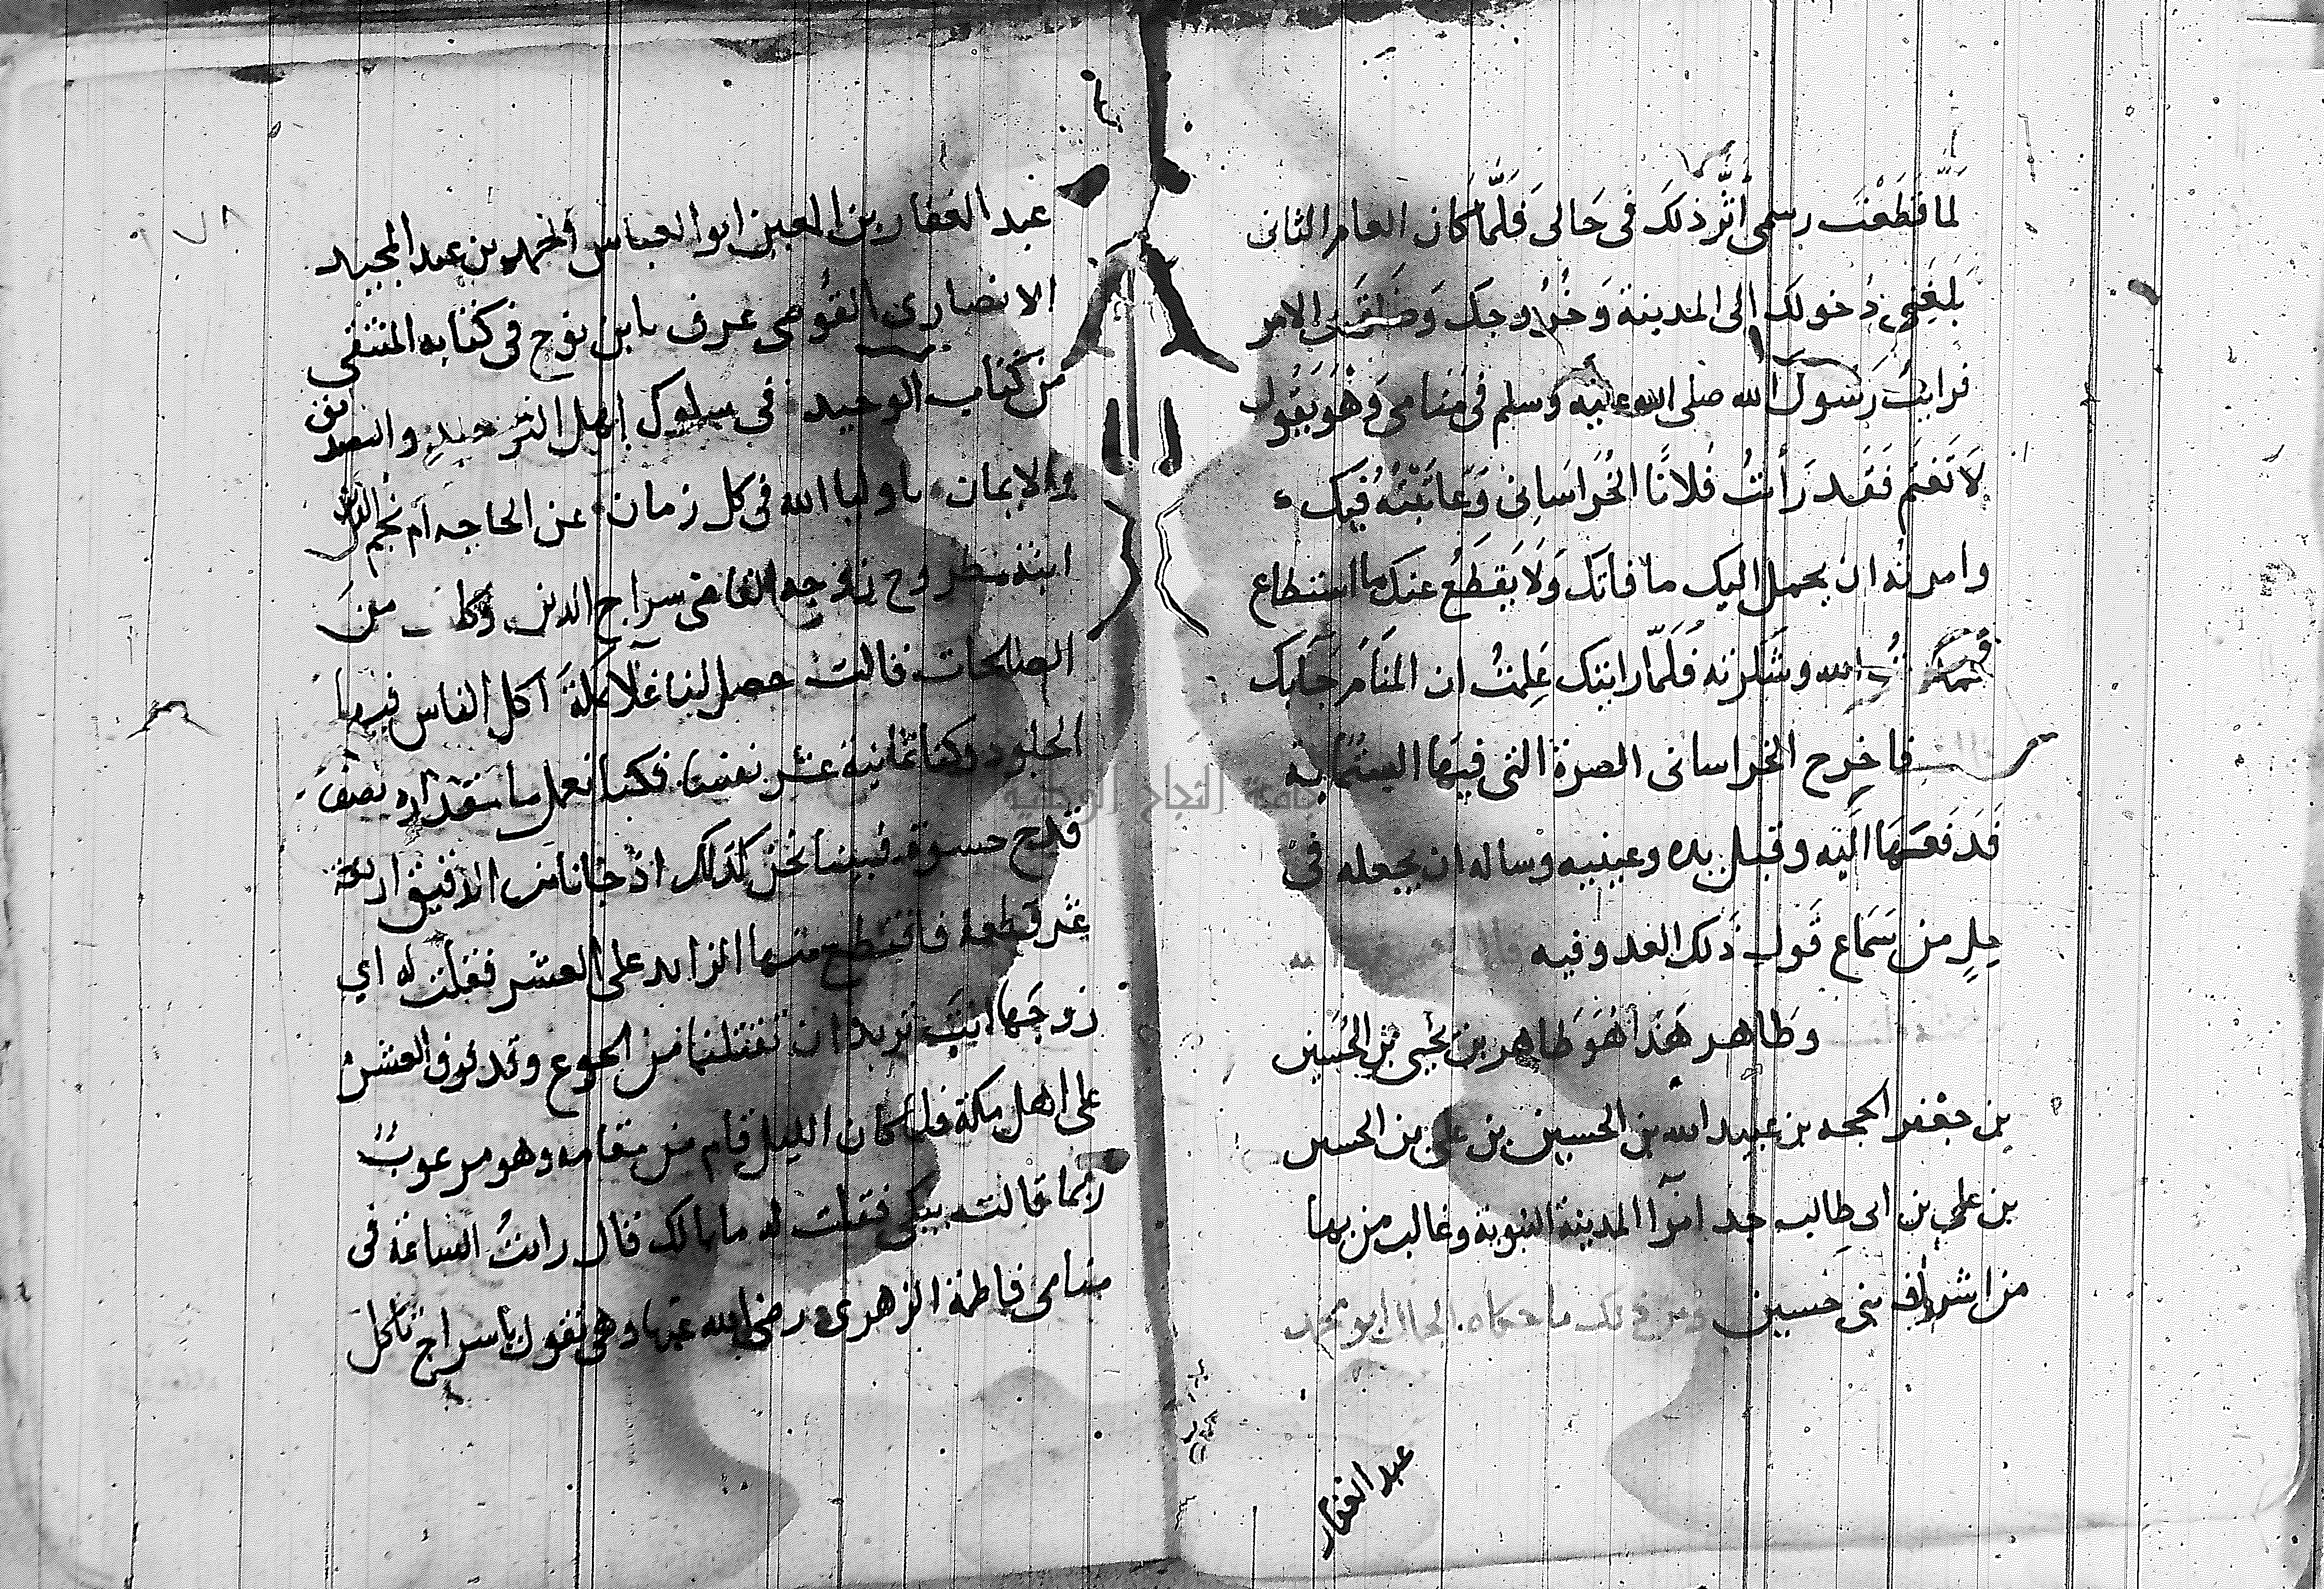 لَمَّا قَطَعْتَ رسمى أثَّر ذلكَ فى حَالى فَلَمَّا كان العام الثانى
بَلغَنى دُخولك إلى المدينة وَخُرُوجك وَضاقَ بى الامر
فرايتُ رَسُولَ الله صلى الله عليه وسلم فى منامى وَهُوَ يَقُول
لَا تَغْتَم فَقَد رَأيتُ فُلانًا الخُرَاسَانى وَعَاتَبْتُه فيك
وامرتُه ان يحمل اليك ما فاتك وَلَا يَقطَعُ عنك ما استطاع
فحمدتُ الله وشكرته فَلَمّا رايتك عَلِمتُ ان المَنَامَ جَابك
فاخرج الخراسانى الصرة التى فيَها الستمَاية
فَدفَعَهَا الَيه وقبل يده وعينيه وساله ان يجعله فى
حِلٍ من سَمَاع قَول ذَلك العدو فيه
وَطاهر هَذا هُوَ طاهر بن يحيى بن الحُسَين
بن جَعْفر الحجه بن عبيد الله بن الحسين بن على بن الحسين
بن على بن ابى طالب جد امرا المدينة النبوية وغالب من بها
من اشراف بنى حُسين ومن ذلك ما حكاه الحالى ابو محمد
عبد الغفار
عبد الغفار بن المعين ابو العباس أحمد بن عبد المجيد
الانصارى القُوصى عرف بابن نوح فى كتابه المنتقى
من كتاب الوحيد فى سلوك اهل التوحيد والتصديق
والايمان باوليا الله فى كل زمان عن الحاجه ام نجم الدين
ابنة مطروح زوجه القاضى سراج الدين وكانت من
الصالحات قالت حصل لنا غلا بمكة آكل الناس فيها
الجلود وكنا ثمانية عشر نفسا فكنا نعمل ما مقداره نصف
قدح حسوة فبينا نحن كذلك اذ جانا من الدقيق اربعة
عشر قطعة فاقتطع منها الزايد على العشر فقلت له اى
زوجَها انتَ تريد ان تقتلنا من الجوع وقد فرق العشر
على اهل مكة فلما كان الليل قام من مقامه وهو مرعوبٌ
ربما قالت يبكى فقلت له ما بالك قال رايتُ الساعة فى
منامى فاطمة الزهرى رضى الله عنها وهى تقول يا سراج تاكل